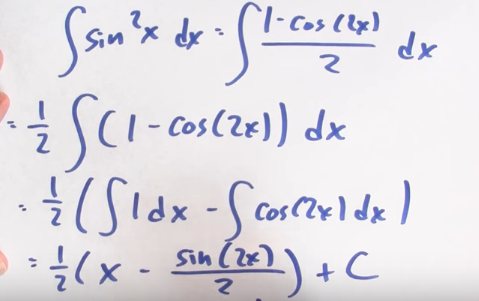 ∫ sin²x dx = ∫ (1-cos(2x))/2 dx
= 1/2 ∫ (1 - cos(2x)) dx
= 1/2 (∫ 1 dx - ∫ cos(2x) dx)
= 1/2 (x - sin(2x)/2) + C